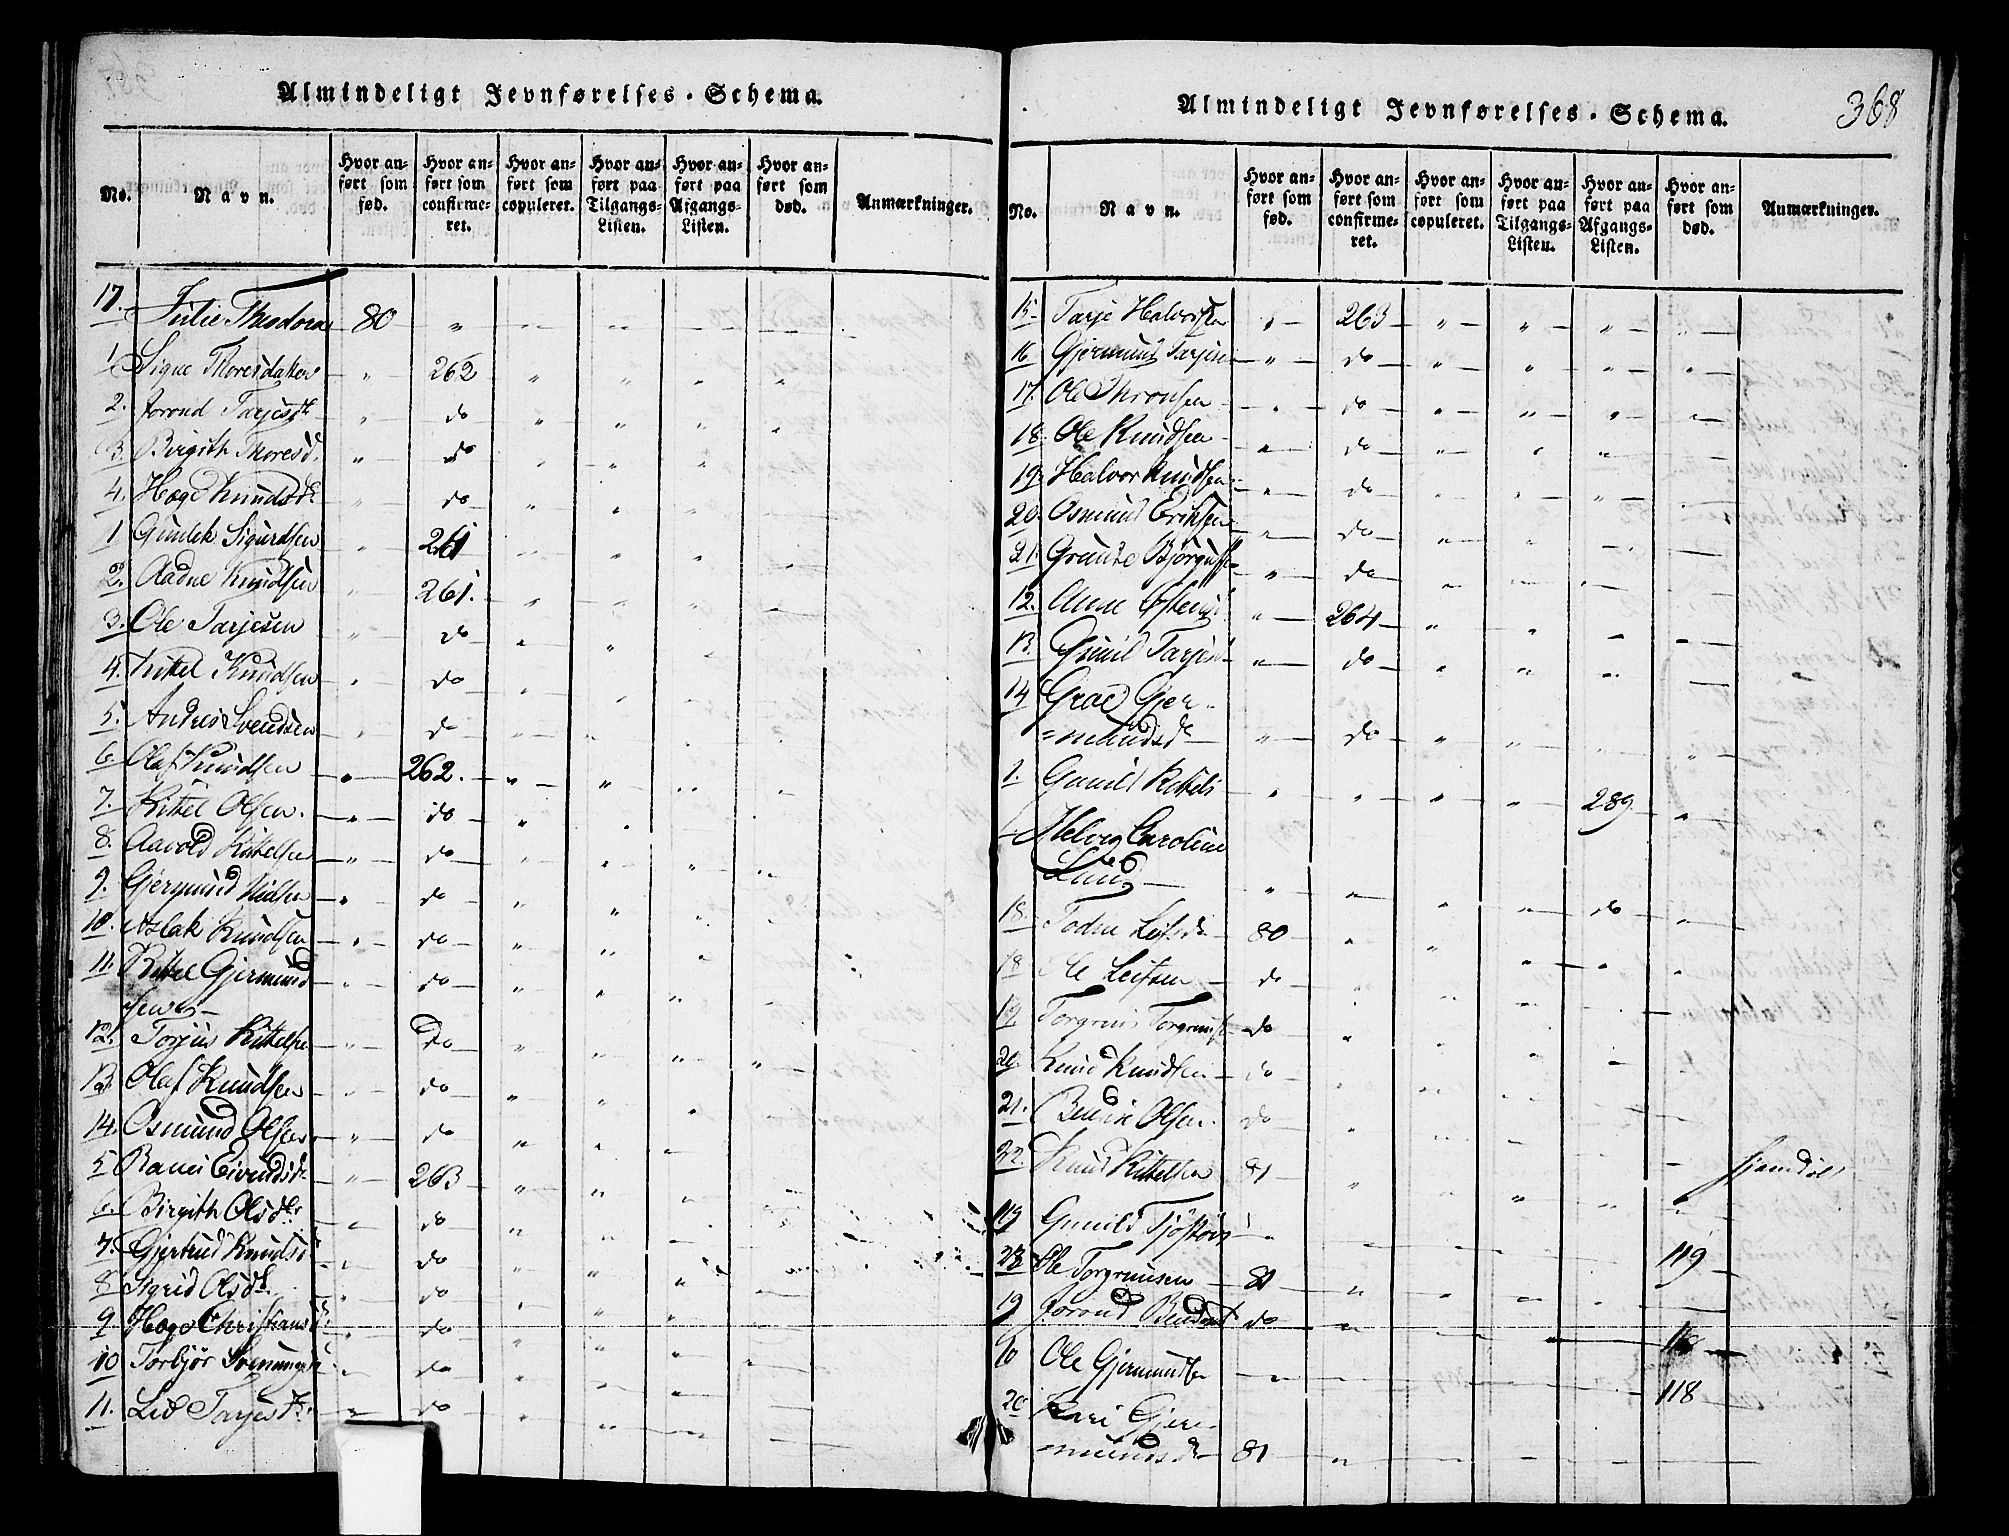 Almindeligt Jevnførelses-Schema.
No. Navn. Hvor anført som fød. Hvor anført som confirmeret. Hvor anført som copuleret. Hvor anført paa Tilgangs-Listen. Hvor anført paa Afgangs-Listen. Hvor anført som død. Anmærkninger.
17. Julie Theodora 80 " " " " "
1. Signe Thoresdatter " 262 " " " "
2. Jorond Tarjesd. " do " " " "
3. Birgith Thoresd. " do " " " "
4. Hæge Knudsd. " do " " " "
1 Gunlek Sigurdsen " 261 " " " "
2. Aadne Knudsen " 261. " " " "
3. Ole Tarjesen " do " " "
4. Kittel Knudsen " do " " "
5. Andres Svendsen " do " " "
6. Olaf Knudsen " 262. " " " "
7. Kittel Olsen. " do " "
8. Aavold Kittelsen " do " " " "
9. Gjermund Nielsen " do " " "
10. Aslak Knudsen " do " " "
11. Kittel Gjermund
sen " do " " "
12. Torjus Kittelsen " Do " " " "
13. Olaf Knudsen " do " " "
14. Osmund Olsen " do " " "
5 Ranei Eivindsd. " 263 " " "
6. Birgith Olsd. " do " "
7. Gjertrud Knudsd " do " " "
8 Sigrid Olsd. " do " " "
9. Hæge Christiansd. " do " "
10 Torbjør Svenungsd " do " "
11. Liv Tarjesd. " do " "
Almindeligt Jevnførelses-Schema. 368
No. Navn. Hvor anført som fød. Hvor anført som confirmeret. Hvor anført som copuleret. Hvor anført paa Tilgangs-Listen. Hvor anført paa Afgangs-Listen. Hvor anført som død. Anmærkninger.
15 Tarje Halvorsen " 263 " " " "
16 Gjermund Tarjesen " do " " " "
17. Ole Thronsen " do " " " "
18. Ole Knudsen " do " " "
19. Halvor Knudsen " do " " " "
20. Osmund Eriksen " do " " "
21. Graute Bjørgufsen " do " " "
12. Anne " 264 " " "
13. Gunil Tarjesd " do " " "
14 Groe Gjer-
=mundsd. " do " " "
1. Gunild Kittels " " " " 289 "
Helvig Caroline
Lund " " " " do "
18. Todne Leifsd. 80 " "
18 Ole Leifsen do " " "
19 Torgrim Torgrimsen do " "
20. Knud Knudsen do "
21. Olsen. do "
22 Knud Kittelsen 81 " " "
119 Gunild "
" 119
23 Ole Torgrimsen 81 " "
19 Jorond do "
10 Ole Gjermundsen " 118
20 Kari Gjer-
=mundsd. 81 " " "